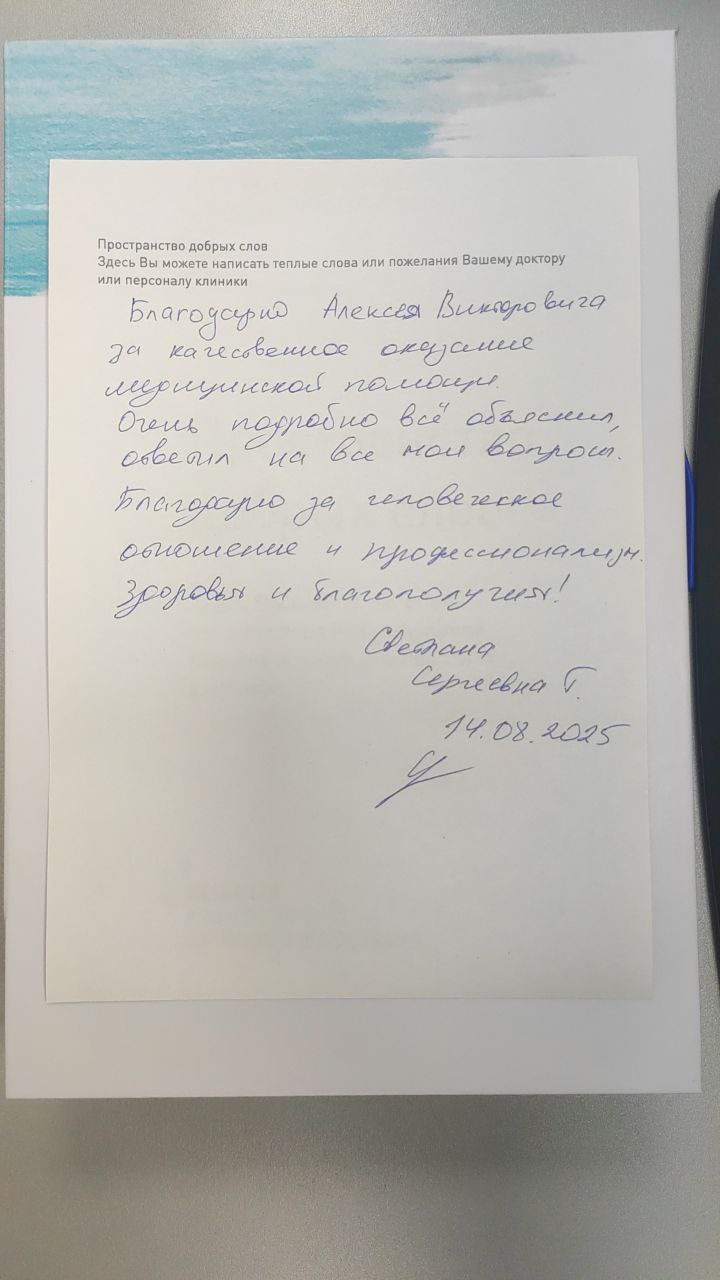 Пространство добрых слов
Здесь Вы можете написать теплые слова или пожелания Вашему доктору
или персоналу клиники
Благодарю Алексея Викторовича
за качественное оказание
медицинской помощи.
Очень подробно всё объяснил,
ответил на все мои вопросы.
Благодарю за человеческое
отношение и профессионализм.
Здоровья и благополучия!
Светлана
Сергеевна Г.
14.08.2025